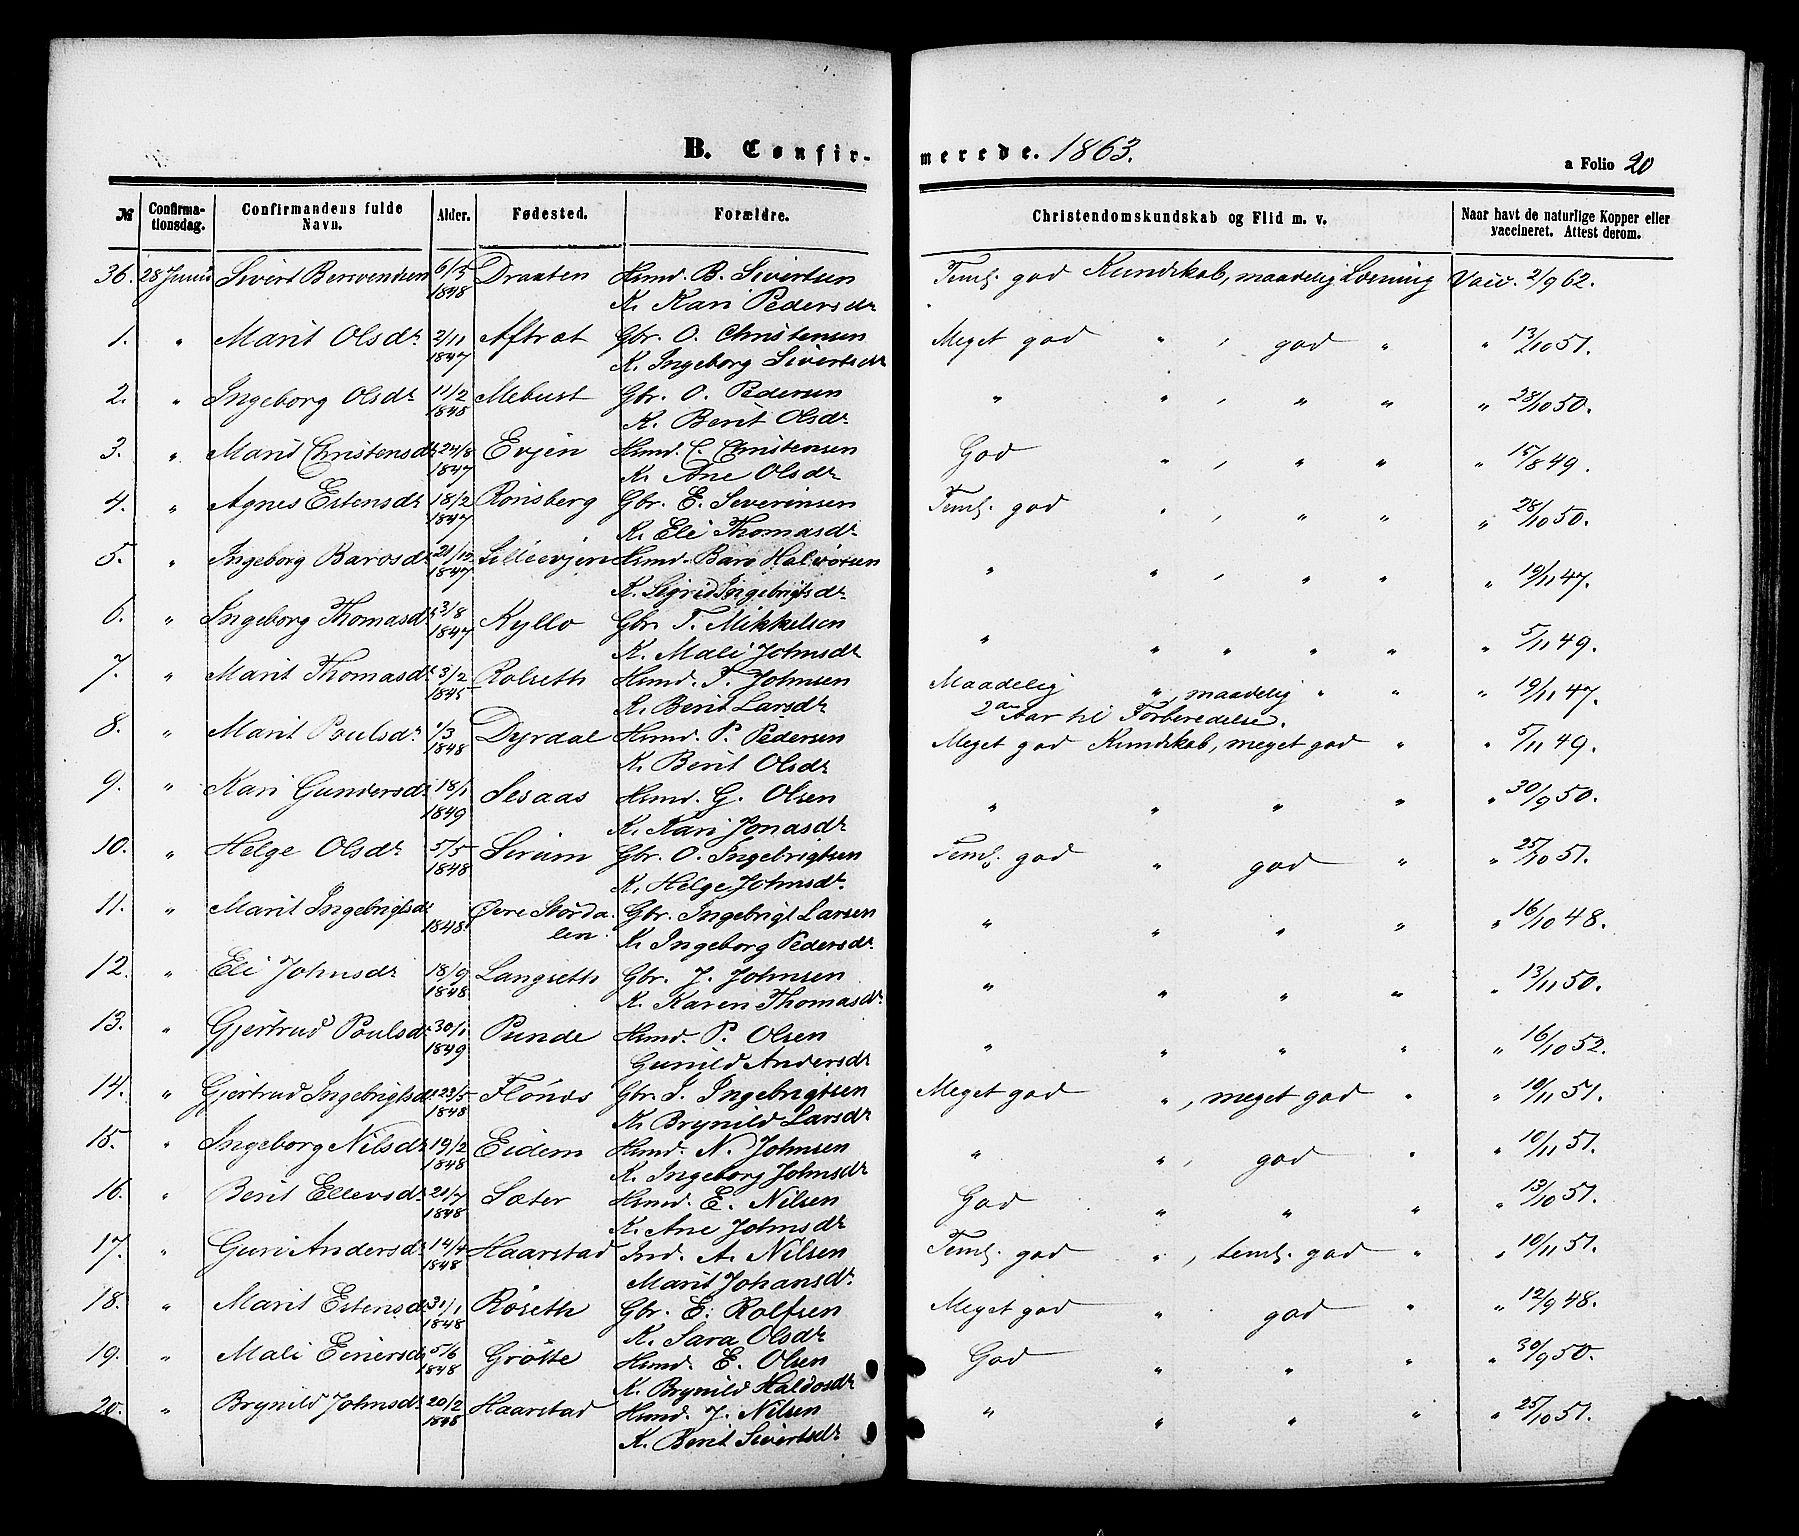 B. Confir-
merede. 1863.
a Folio 20
№ Confirma-tionsdag. Confirmandens fulde Navn. Alder. Fødested. Forældre. Christendomskundskab og Flid m. v. Naar havt de naturlige Kopper eller vaccineret. Attest derom.
36. 28 Juni Sivert Bersvendsen 6/3 1848 Draaten Husmd. B. Sivertsen Teml. god Kundskab, maadelig Læsning Vacc. 2/9 62.
K. Kari Pedersdr
1. " Marit Olsdr 2/11 1847 Aftret Gbr. O. Christensen Meget god " , god " " 13/10 51.
K. Ingeborg Sivertsdr
2. " Ingeborg Olsdr 11/2 1848 Mebust Gbr. O. Pedersen " " , " " " 28/10 50.
K. Berit Olsdr
3. " Marit Christensdr 24/8 1847 Evjen Husmd. C. Christensen God " , " " " 15/8 49.
K. Ane Olsdr
4. " Agnes Estensdr 18/2 1847 Rønsberg Gbr. E. Severinsen Teml. god " , " " " 28/10 50.
K. Eli Thomasdr
5. " Ingeborg Barosdr 21/12 1847 Lillievjen Husmd. Baro Halvorsen " " , " " " 19/11 47.
K. Sigrid Ingebrigtsdr
6. " Ingeborg Thomasdr 3/8 1847 Kyllo Gbr. T. Mikkelsen " " " " " " 5/11 49.
K. Mali Johnsdr
7. " Marit Thomasdr 3/2 1845 Rolseth Husmd. T. Johnsen Maadelig " , maadelig " " " 19/11 47.
K. Berit Larsdr 2 Aar til Forberedelse.
8. " Marit Poulsdr 1/3 1848 Dyrdal Husmd. P. Pedersen Meget god Kundskab, meget god " " 5/11 49.
K. Berit Olsdr
9. " Kari Gundersdr 18/1 1849 Sesaas Husmd. G. Olsen " " " " " 30/9 50.
K. Kari Jonasdr
10. " Helge Olsdr 5/5 1848 Sirum Gbr. O. Ingebrigtsen Teml. god " god " " 25/10 51.
K. Helge Johnsdr.
11. " Marit Ingebrigtsdr 1848 Øvre Størdalen. Gbr. Ingebrigt Larsen " " " " " 16/10 48.
K. Ingeborg Pedersdr.
12. " Eli Johnsdr 18/9 1848 Langseth Gbr. J. Johnsen " " " " " 13/11 50.
K. Karen Thomasdr.
13. " Gjertrud Poulsdr 30/1 1849 Punde Husmd. P. Olsen " " " " " 16/10 52.
Gunild Andersdr
14. " Gjertrud Ingebrigtsdr 23/5 1848 Flønes Gbr. I. Ingebrigtsen Meget god " , meget god " " 19/11 51.
K. Brynild Larsdr
15. " Ingeborg Nilsdr 19/2 1848 Eidem Husmd. N. Johnsen " " , god " " 10/11 51.
K. Ingeborg Johnsdr
16. " Berit Ellevsdr 21/7 1848 Sæter Husmd. E. Nilsen God " " " " 13/10 51.
K. Ane Johnsdr
17. " Guri Andersdr 14/4 1848 Haarstad Ind. A. Nilsen Teml. god " , teml. god " " 10/11 51.
Marit Johansdr.
18. " Marit Estensdr 31/1 1848 Røseth Gbr. E. Rolfsen Meget god " god " " 12/9 48.
K. Sara Olsdr
19. " Mali Einersdr 5/6 1848 Grøtte Husmd. E. Olsen God " " " " 30/9 50.
K. Brynild Haldosdr
20. " Brynild Johnsdr 20/2 1848 Haarstad Husmd. J. Nilsen " " " " " 25/10 51.
K. Berit Sivertsdr